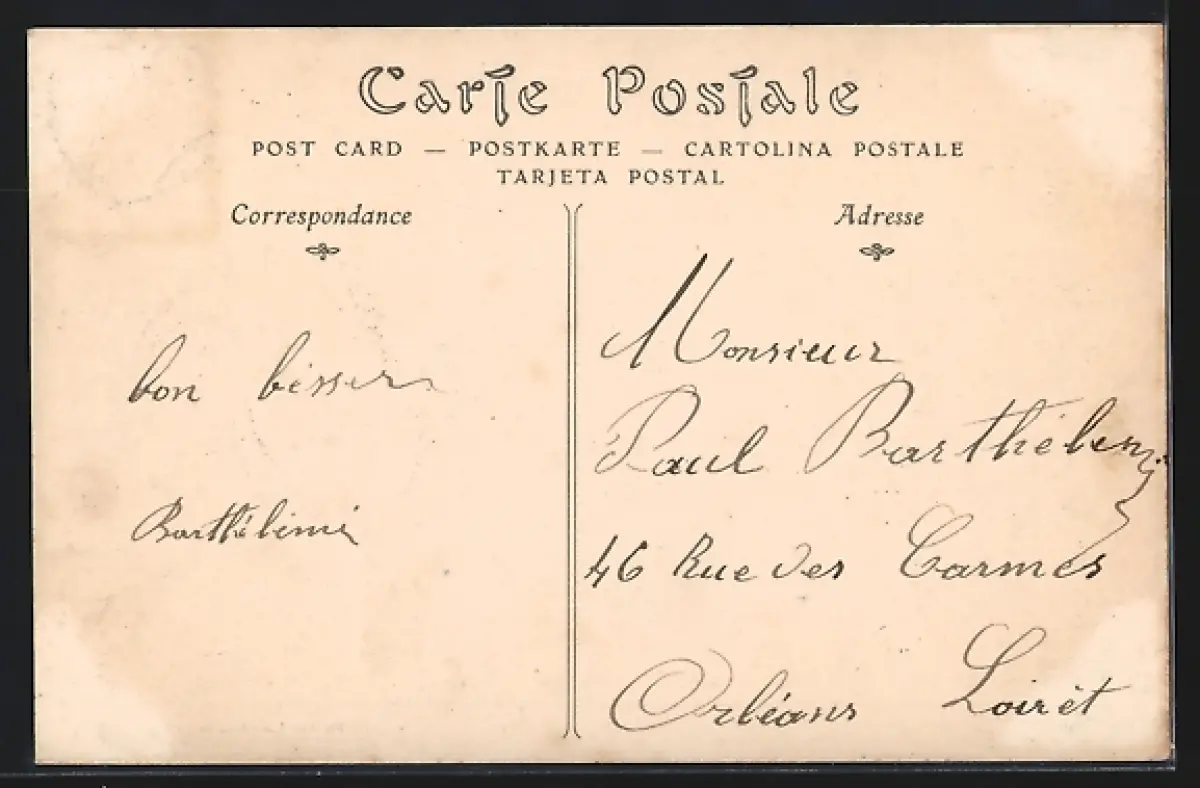 Carte Postale
POST CARD — POSTKARTE — CARTOLINA POSTALE
TARJETA POSTAL
Correspondance
bon besser
Barthélémi
Adresse
Monsieur
Paul Barthélemy
46 Rue des Carmes
Orléans Loirèt